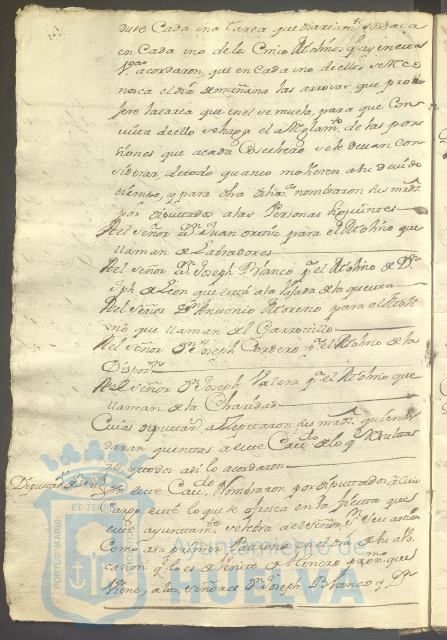 duse Cada una tarea que diariamte se saca
en Cada uno de los Cinco Molinos q ay en esta
Va acordaron, que en Cada uno de ellos se Re
nosca el dia de mañana las arrovas, que produ
sere la tarea que en el se muela, para que Con
vista de ello se haga el a Reglamto de las por
siones que acada Cosechero se le devan con
siderar, de todo quanto molieren a he devido
tiempo, y para dha diliga nombraron sus mrds
por diputados alas Personas siguientes
Al Señor Dn Juan ortiz para el Molino que
llaman de Labradores
Al Señor Dn Joseph Blanco pa el Molino de Dn
Jph de Leon que está ala vajada de la questa
Al Señor Dn Antonio Moreno para el Moli
no que llaman del Garrotillo
Al Señor Dn Joseph Cordero pa el Molino de la
Al Señor Dn Joseph Valera pa el Molino que
llaman de la Charidad
Cuios diputados aceptaron sus mrds quienes
daran quentas a este Cavdo de lo q Resultas
y todos asi lo acordaron
Diputados
En este Cavdo Nombraron por diputados a cuio
Cargo esté lo que se ofresca en la fiesta que
este ayuntamto selebra al Señor Sn Sevastian
Como a su primer Patrono en el dia de su alo
casion q lo es de Veinte de Henero proximo que
viene, alos Señores Dn Joseph Blanco y Dn
PORTUS MARIS
ET TERRAE
Ayuntamiento de
HUELVA